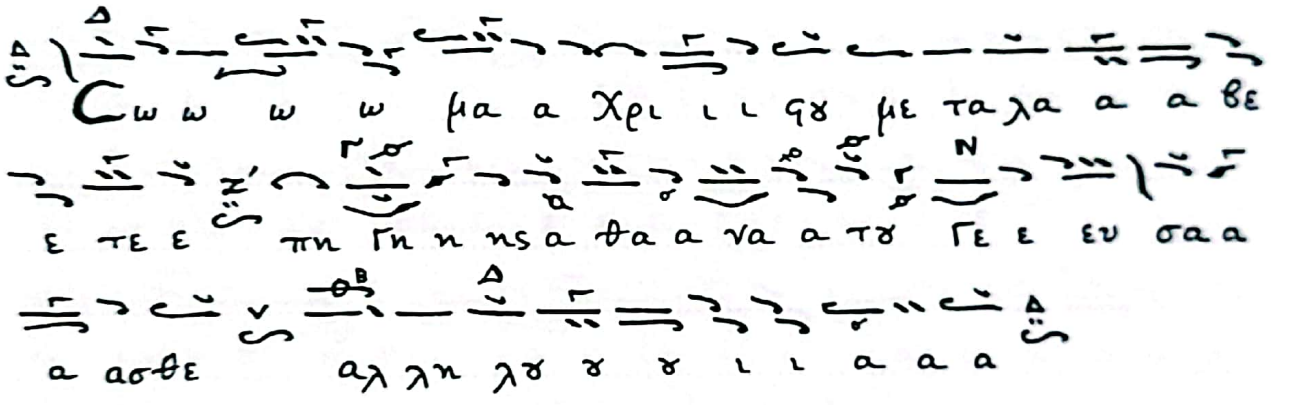 Σω ω ω ω μα α Χρι ι ι ϛȣ με τα λα α α βε
ε τε ε πη Γη η ης α θα α να α τȣ Γε ε ευ σα α
α ασθε αλ λη λȣ ȣ ȣ ι ι α α α